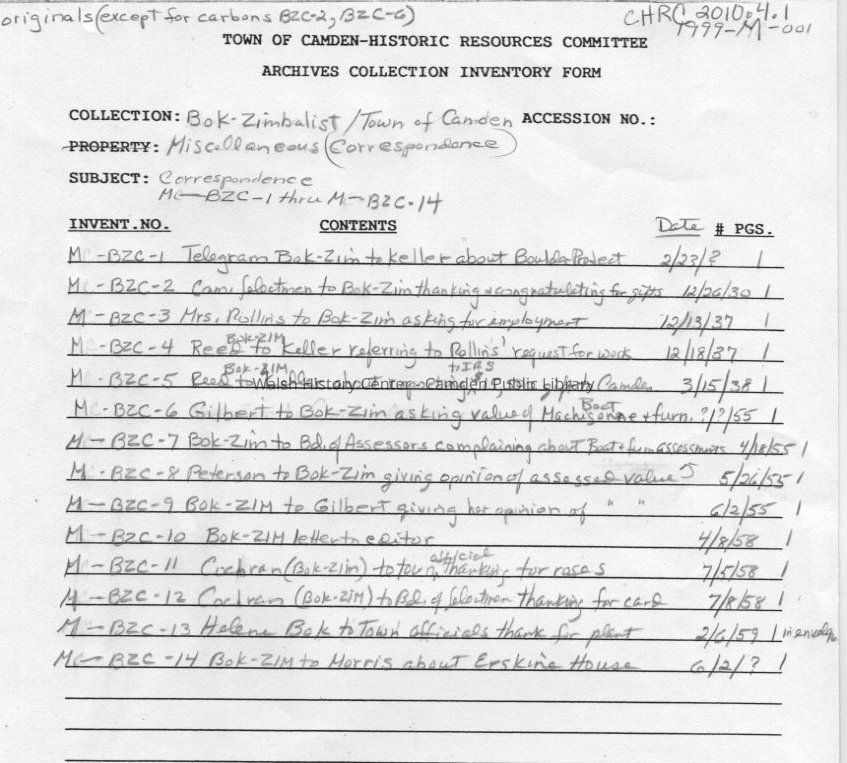 originals (except for carbons BZC-2, BZC-6)
CHRC 2010.4.1
1999-M-001
TOWN OF CAMDEN-HISTORIC RESOURCES COMMITTEE
ARCHIVES COLLECTION INVENTORY FORM
COLLECTION: Bok-Zimbalist/Town of Camden ACCESSION NO.:
PROPERTY: Miscellaneous (Correspondence)
SUBJECT: Correspondence
MC-BZC-1 thru M-BZC-14
INVENT.NO. CONTENTS Date # PGS.
M-BZC-1 Telegram Bok-Zim to Keller about Project 2/23/? 1
M-BZC-2 Cam. Selectmen to Bok-Zim thanking & congratulating for gifts 12/26/30 1
M-BZC-3 Mrs. Rollins to Bok-Zim asking for employment 12/13/37 1
M-BZC-4 Reed to Bok-ZIM Keller referring to Rollins' request for work 12/18/37 1
M-BZC-5 Reed to Bok-ZIM to IRS Camden 3/15/38 1
Walsh History Center - Camden Public Library
MC-BZC-6 Gilbert to Bok-Zim asking value of Boat + furn. ?/?/55 1
M-BZC-7 Bok-Zim to Bd. of Assessors complaining about Boat + furn assessments 4/18/55 1
M-BZC-8 Peterson to Bok-Zim giving opinion of assessed value 5/26/55 1
M-BZC-9 BOK-ZIM to Gilbert giving her opinion of " " 6/2/55 1
M-BZC-10 Bok-ZIM letter to editor 4/8/58 1
M-BZC-11 Cochran (Bok-Zim) to town official thanking for roses 7/5/58 1
M-BZC-12 Cochran (Bok-ZIM) to Bd. of Selectmen thanking for card 7/8/58 1
M-BZC-13 Helene Bok to Town officials thank for plant 2/6/59 1 in envelope
MC-BZC-14 Bok-ZIM to Morris about Erskine House 6/2/? 1